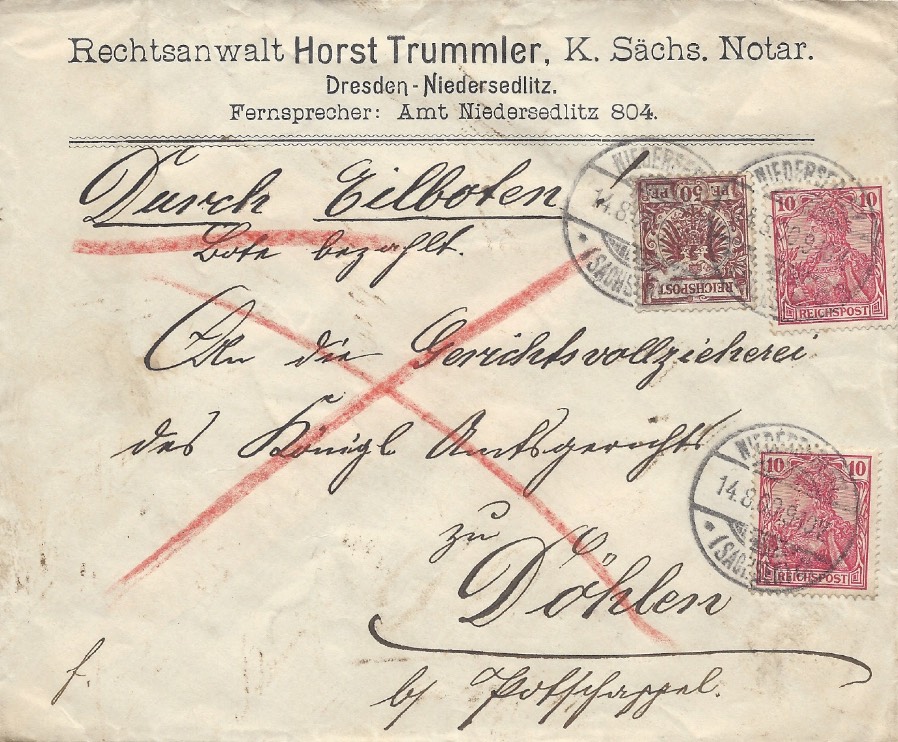 Rechtsanwalt Horst Trummler, K. Sächs. Notar.
Dresden-Niedersedlitz.
Fernsprecher: Amt Niedersedlitz 804.
Durch Eilboten!
Bote bezahlt.
50 PF 50
REICHSPOST
10 10
REICHSPOST
An die Gerichtsvollzieherei
des Königl Amtsgerichts
zu
Döhlen
b/ Potschappel.
10 10
REICHSPOST
f.